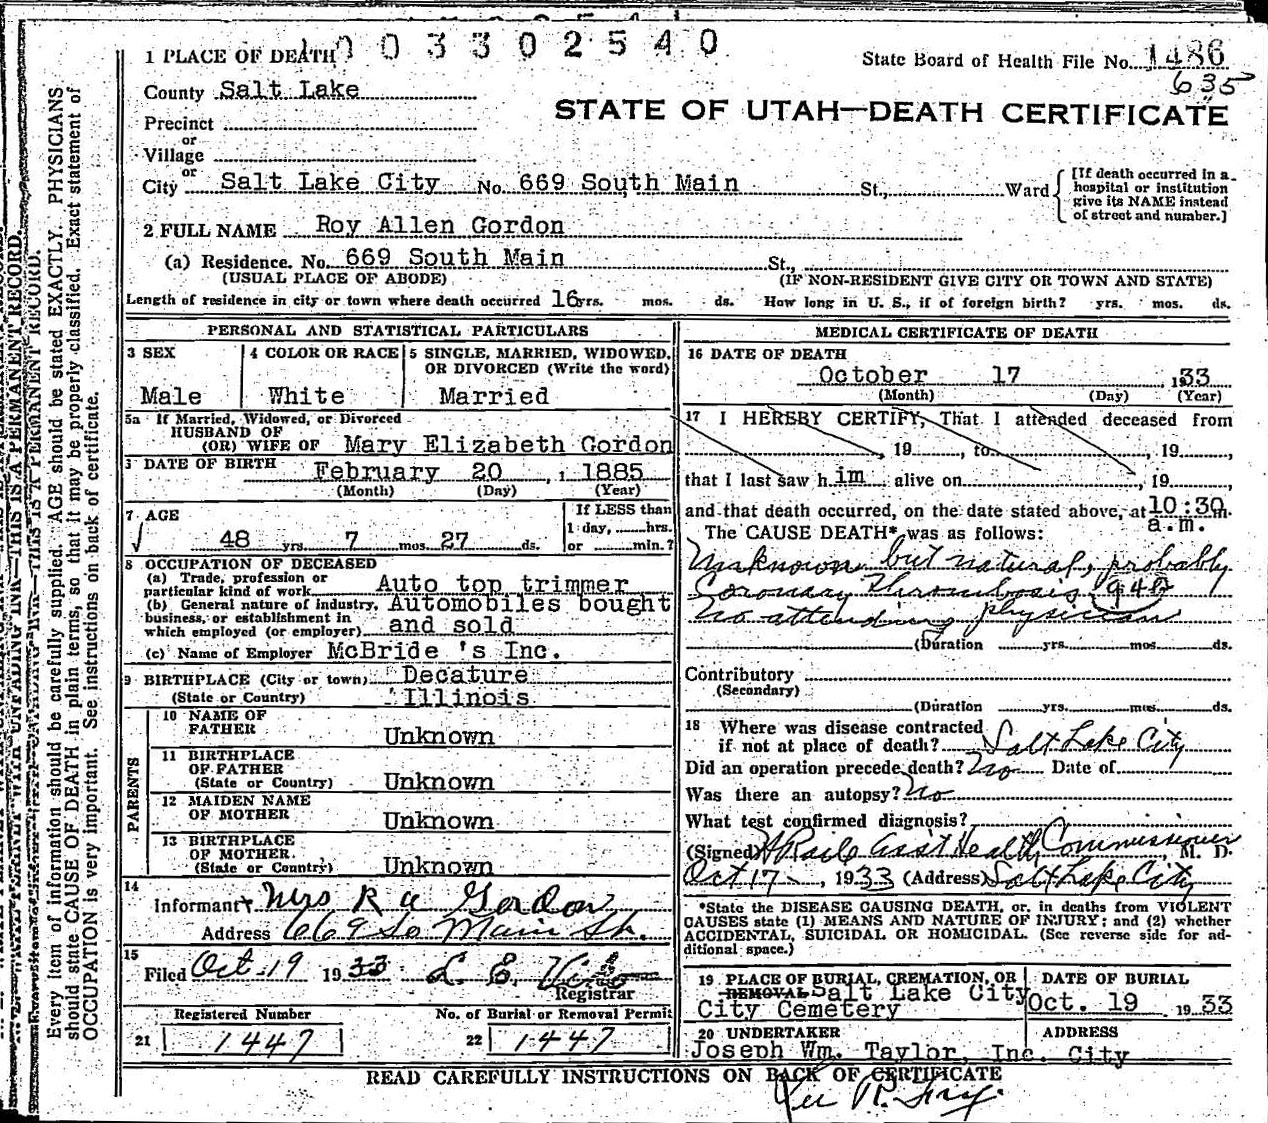 1 PLACE OF DEATH 0 0 3 3 0 2 5 4 0
State Board of Health File No. 1486
635
County Salt Lake
STATE OF UTAH—DEATH CERTIFICATE
Precinct
or
Village
or
City Salt Lake City No. 669 South Main St., Ward
[If death occurred in a
hospital or institution
give its NAME instead
of street and number.]
2 FULL NAME Roy Allen Gordon
(a) Residence. No. 669 South Main St.,
(USUAL PLACE OF ABODE) (IF NON-RESIDENT GIVE CITY OR TOWN AND STATE)
Length of residence in city or town where death occurred 16 yrs. mos. ds. How long in U. S., if of foreign birth? yrs. mos. ds.
PERSONAL AND STATISTICAL PARTICULARS
3 SEX
Male
4 COLOR OR RACE
White
5 SINGLE, MARRIED, WIDOWED,
OR DIVORCED (Write the word)
Married
5a If Married, Widowed, or Divorced
HUSBAND OF
(OR) WIFE OF Mary Elizabeth Gordon
DATE OF BIRTH February 20, 1885
(Month) (Day) (Year)
7 AGE
48 yrs. 7 mos. 27 ds.
If LESS than
1 day, hrs.
or min.?
8 OCCUPATION OF DECEASED
(a) Trade, profession or
particular kind of work Auto top trimmer
(b) General nature of industry, Automobiles bought
business, or establishment in
which employed (or employer) and sold
(c) Name of Employer McBride 's Inc.
9 BIRTHPLACE (City or town) Decature
(State or Country) Illinois
PARENTS
10 NAME OF
FATHER Unknown
11 BIRTHPLACE
OF FATHER
(State or Country) Unknown
12 MAIDEN NAME
OF MOTHER Unknown
13 BIRTHPLACE
OF MOTHER.
(State or Country) Unknown
14
Informant Mrs R A Gordon
Address 669 So Main St.
15
Filed Oct-19 1933 L. E.
Registrar
Registered Number
21 1447
No. of Burial or Removal Permit
22 1447
MEDICAL CERTIFICATE OF DEATH
16 DATE OF DEATH
October 17, 1933
(Month) (Day) (Year)
17 I HEREBY CERTIFY, That I attended deceased from
, 19 , to , 19 ,
that I last saw him alive on , 19 ,
and that death occurred, on the date stated above, at 10:30 m.
a.m.
The CAUSE DEATH* was as follows:
Unknown but natural, probably
Coronary thrombosis 94a
no attending physician
(Duration yrs. mos. ds.
Contributory
(Secondary)
(Duration yrs. mos. ds.
18 Where was disease contracted
if not at place of death? Salt Lake City
Did an operation precede death? No Date of
Was there an autopsy? No
What test confirmed diagnosis?
(Signed) Ass't Health Commissioner M. D.
Oct 17-, 1933 (Address) Salt Lake City
*State the DISEASE CAUSING DEATH, or, in deaths from VIOLENT
CAUSES state (1) MEANS AND NATURE OF INJURY; and (2) whether
ACCIDENTAL, SUICIDAL OR HOMICIDAL. (See reverse side for ad-
ditional space.)
19 PLACE OF BURIAL, CREMATION, OR
REMOVAL Salt Lake City
City Cemetery
DATE OF BURIAL
Oct. 19 1933
20 UNDERTAKER ADDRESS
Joseph Wm. Taylor, Inc. City
READ CAREFULLY INSTRUCTIONS ON BACK OF CERTIFICATE
Every item of information should be carefully supplied. AGE should be stated EXACTLY. PHYSICIANS
should state CAUSE OF DEATH in plain terms, so that it may be properly classified. Exact statement of
OCCUPATION is very important. See instructions on back of certificate.